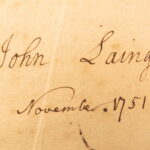 John Laing
November. 1751